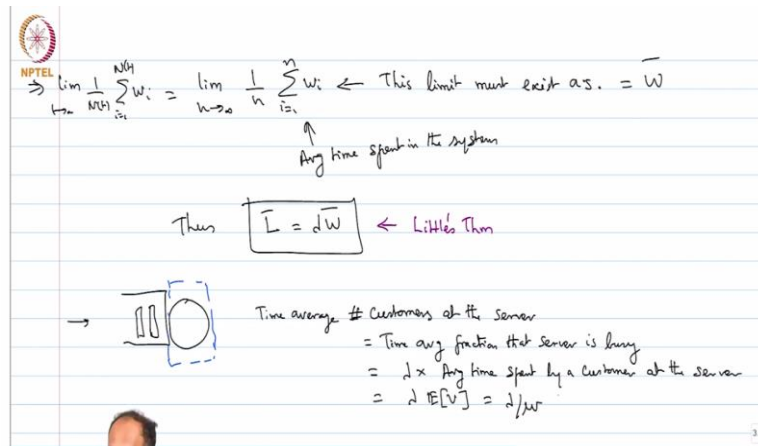 NPTEL
⇒ lim t→∞ 1/N(t) Σ i=1 N(t) Wi = lim n→∞ 1/n Σ i=1 n Wi ← This limit must exist a.s. = W̄
↑
Avg time spent in the system
Thus L̄ = λW̄ ← Little's Thm
→ Time average # Customers at the server
= Time avg fraction that server is busy
= λ × Avg time spent by a customer at the server
= λ E[V] = λ/μ
3